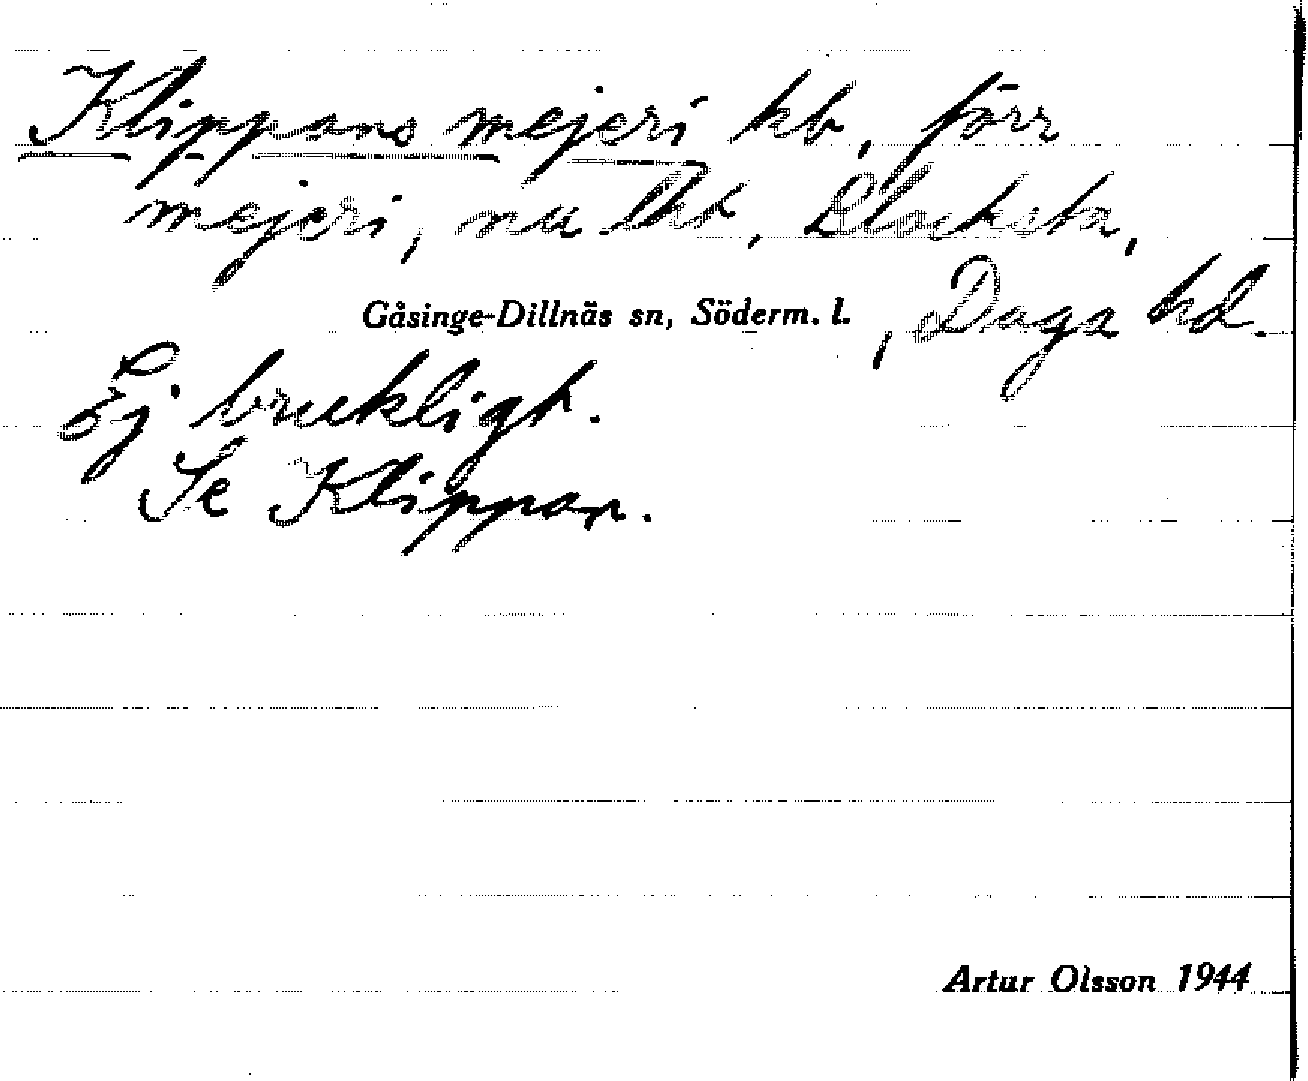 Klippans mejeri kb, förr
mejeri, nu
Gåsinge-Dillnäs sn, Söderm. l., Daga hd.
Ej brukligt.
Se Klippan.
Artur Olsson 1944